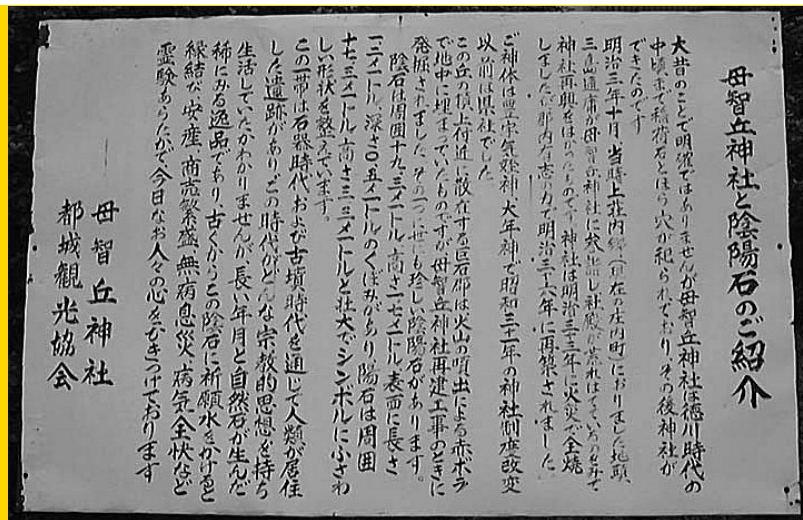 母智丘神社と陰陽石のご紹介
大昔のことで明確ではありませんが母智丘神社は徳川時代の
中頃まで稲荷石とほら穴が祀られており、その後神社が
できたのです
明治三年十月、当時上荘内郷(現在の庄内町)におりました地頭、
三島通庸が母智丘神社に
神社再興をはかったものです神社は明治三十三年に火災で全焼
しましたが郡内有志の力で明治三十六年に再築されました。
ご神体は豊宇気姫神、大年神で昭和二十一年の神社制度改変
以前は県社でした
この丘の頂上付近に散在する巨石群は火山の噴出による赤ボラ
で地中に埋まっていたものですが母智丘神社再建工事のときに
発掘されました。その一つに世にも珍しい陰陽石があります。
陰石は周囲十九、三メートル、高さ一、七メートル、表面に長さ
一、二メートル、深さ〇、五メートルのくぼみがあり陽石は周囲
十七、三メートル、高さ三、三メートルと壮大でシンボルにふさわ
しい形状を整えています。
この一帯は石器時代および古墳時代を通じて人類が居住
した遺跡があり、この時代がどんな宗教的思想を持ち
生活していたかわかりませんが、長い年月と自然石が生んだ
稀にみる逸品であり、古くからこの陰石に祈願水をかけると
縁結び、安産、商売繁盛、無病息災、病気全快など
霊験あらたかで今日なお人々の心をひきつけております
母智丘神社
都城観光協会